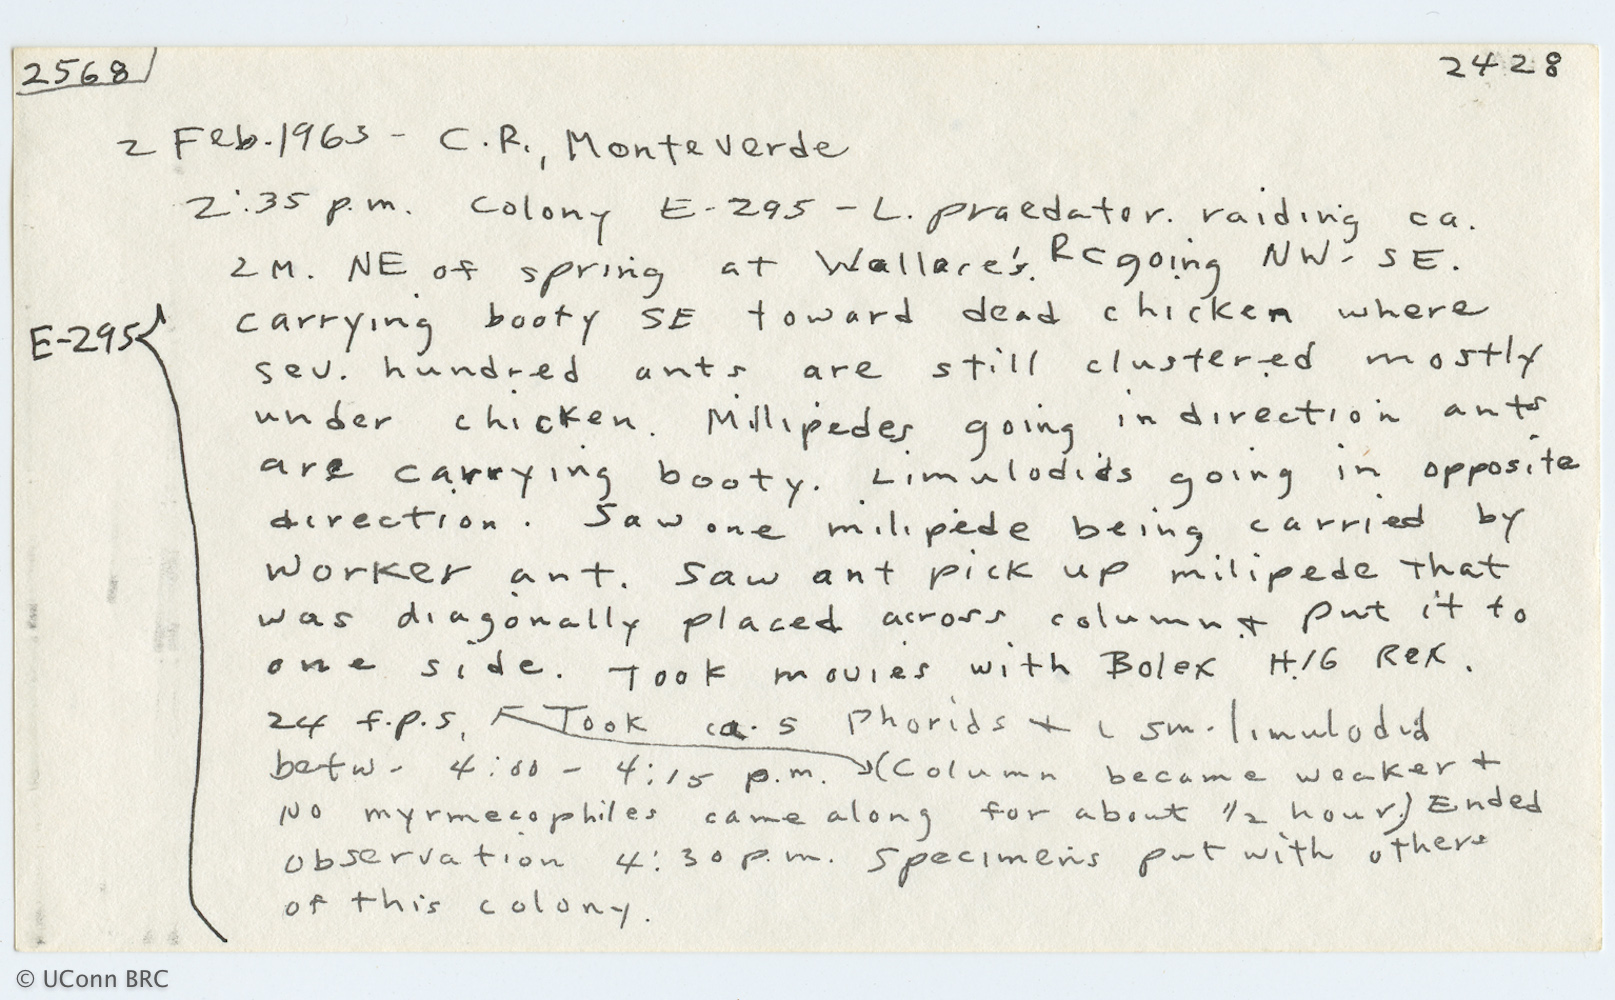 2568
2428
2 Feb. 1963 - C.R., Monteverde
2:35 p.m. Colony E-295 - L. praedator. raiding ca.
2 M. NE of spring at Wallace's. RC going NW - SE.
carrying booty SE toward dead chicken where
E-295
sev. hundred ants are still clustered mostly
under chicken. Millipedes going in direction ants
are carrying booty. Limulodids going in opposite
direction. Saw one milipede being carried by
worker ant. Saw ant pick up milipede that
was diagonally placed across column & put it to
one side. Took movies with Bolex H.16 Rex.
24 f.p.s. Took ca. 5 Phorids + 1 sm. limulodid
betw. 4:00 - 4:15 p.m. (Column became weaker +
No myrmecophiles came along for about 1/2 hour.) Ended
observation 4:30 p.m. Specimens put with others
of this colony.
© UConn BRC